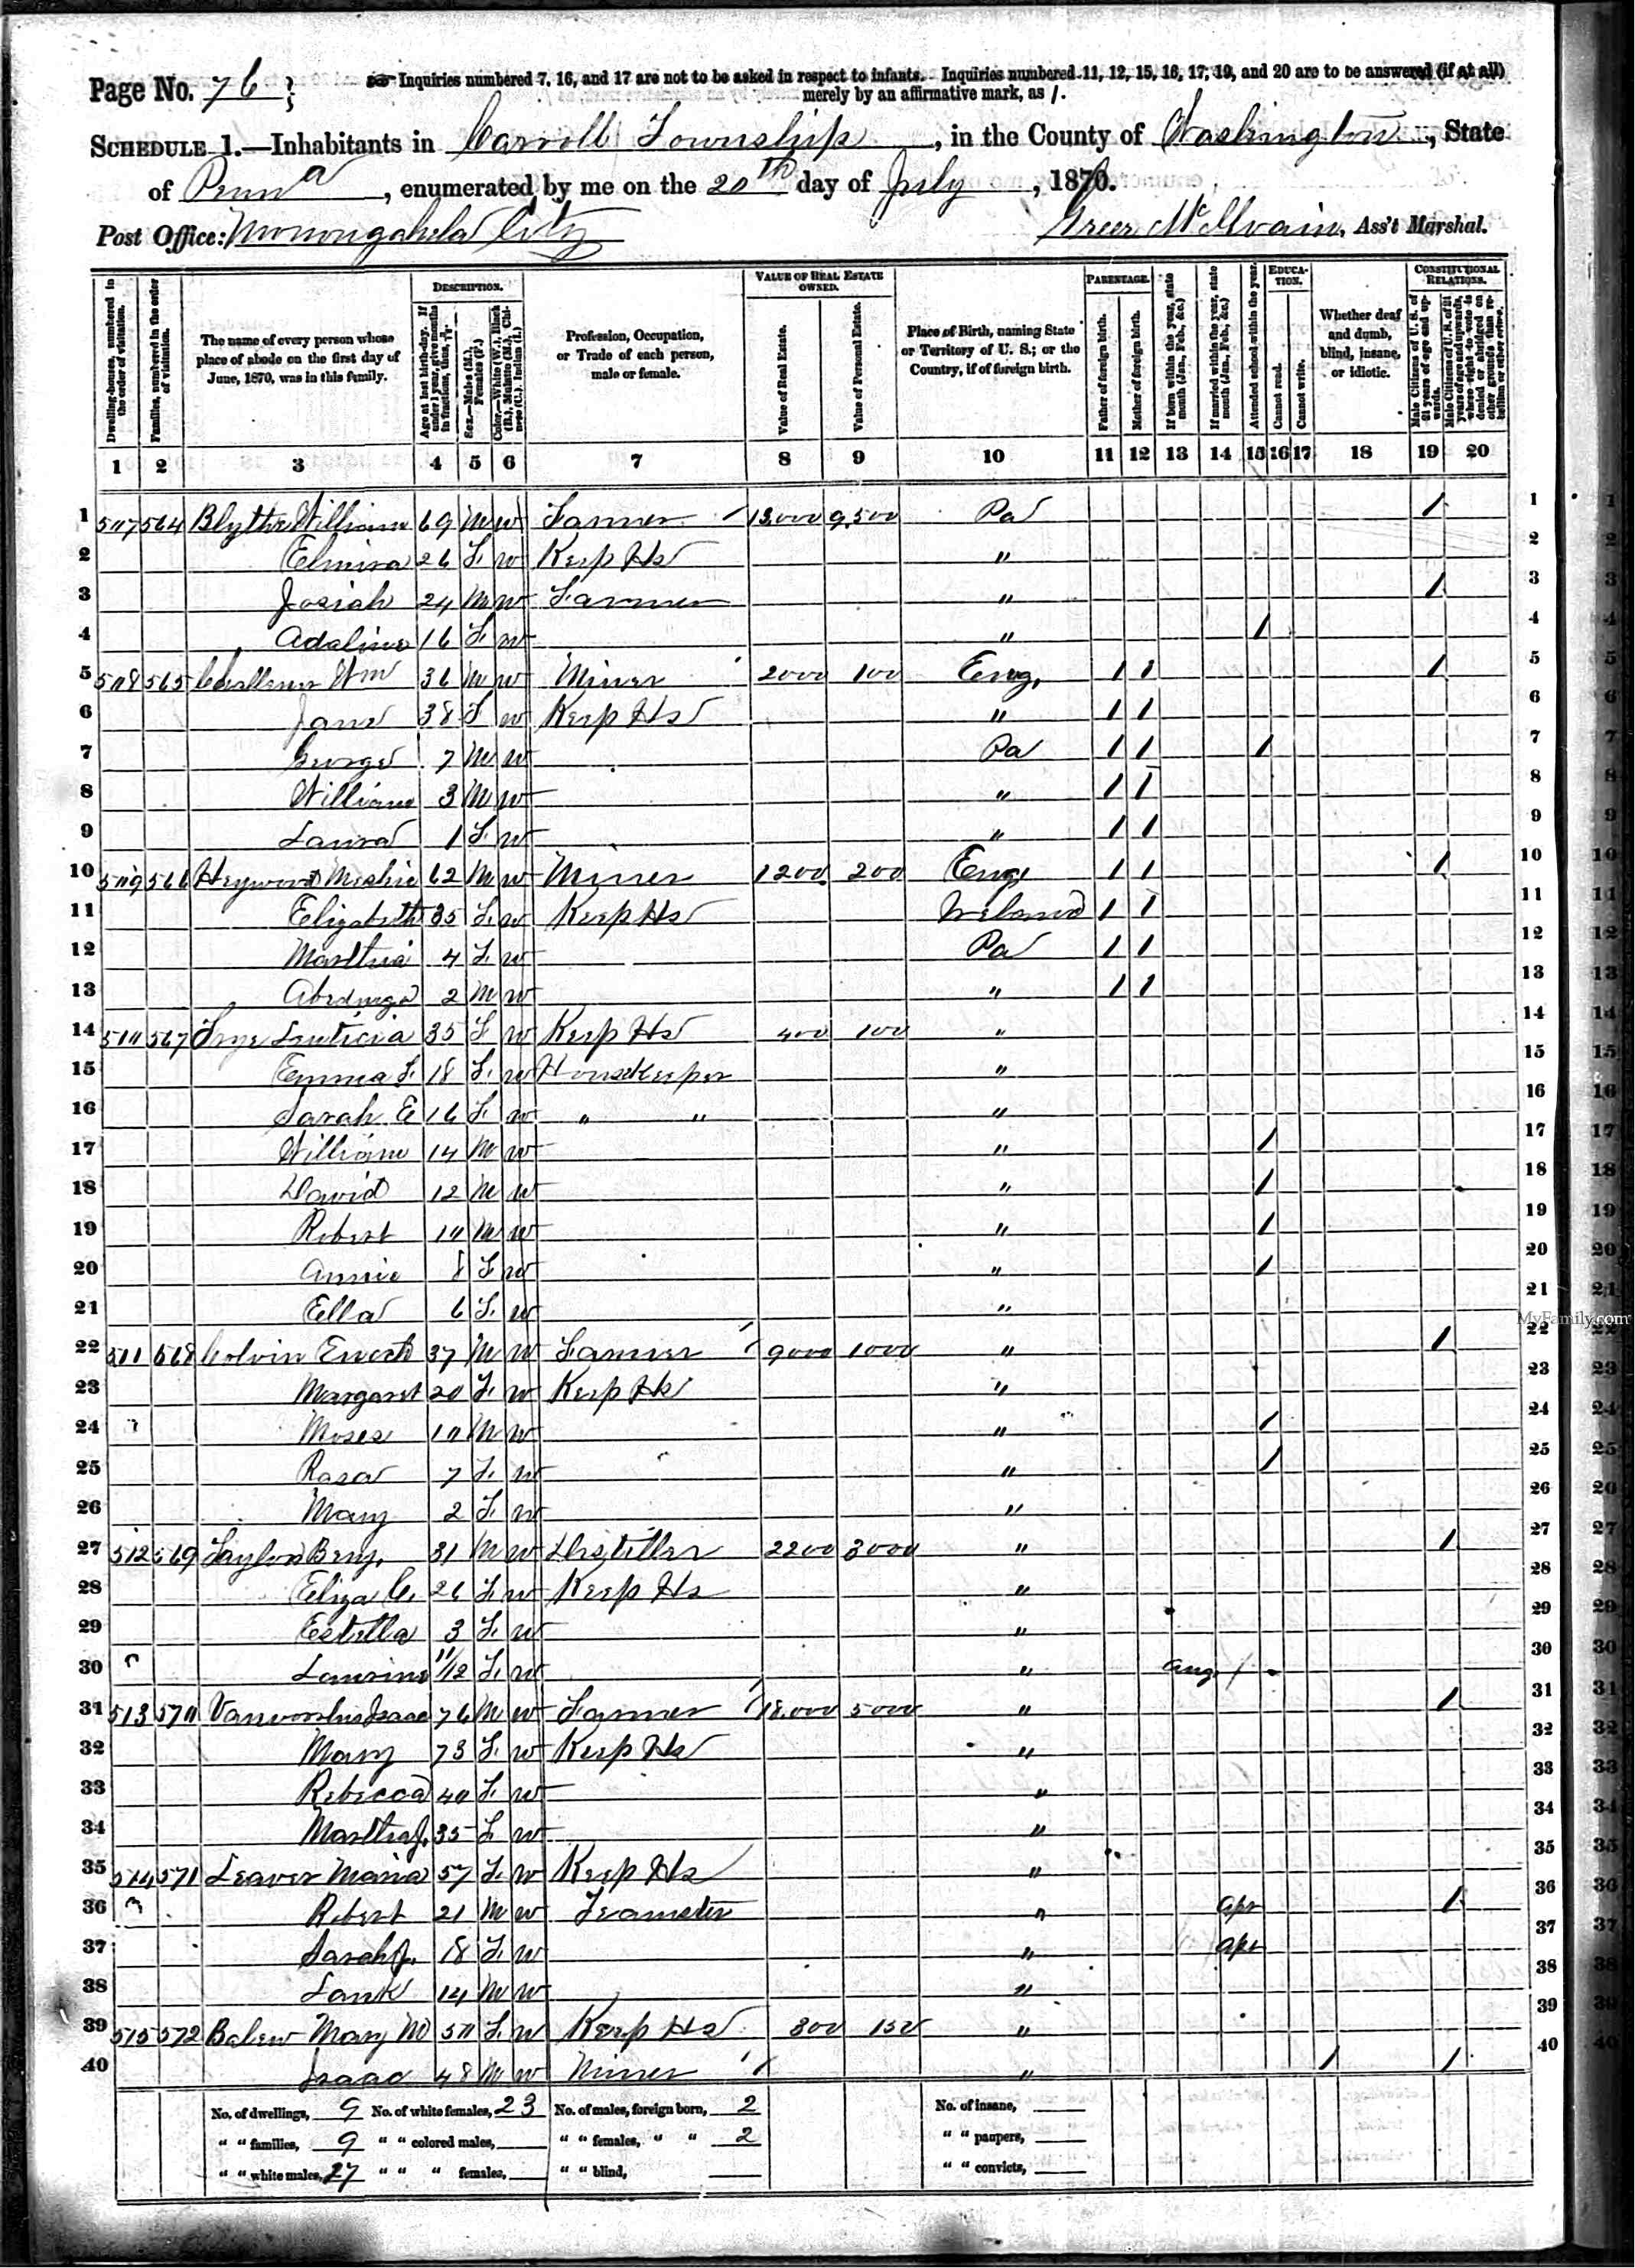 Page No. 76
Inquiries numbered 7, 16, and 17 are not to be asked in respect to infants. Inquiries numbered 11, 12, 15, 16, 17, 19, and 20 are to be answered (if at all)
merely by an affirmative mark, as /.
SCHEDULE 1.—Inhabitants in Carroll Township, in the County of Washington, State
of Penna, enumerated by me on the 20th day of July, 1870.
Post Office: Monongahela City Greer McIlvain, Ass't Marshal.
Dwelling-houses, numbered in the order of visitation.
Families, numbered in the order of visitation.
The name of every person whose place of abode on the first day of June, 1870, was in this family.
DESCRIPTION.
Age at last birth-day. If under 1 year, give months in fractions, thus, 3/12.
Sex.—Males (M.), Females (F.)
Color.—White (W.), Black (B.), Mulatto (M.), Chinese (C.), Indian (I.)
Profession, Occupation, or Trade of each person, male or female.
VALUE OF REAL ESTATE OWNED.
Value of Real Estate.
Value of Personal Estate.
Place of Birth, naming State or Territory of U. S.; or the Country, if of foreign birth.
PARENTAGE.
Father of foreign birth.
Mother of foreign birth.
If born within the year, state month (Jan., Feb., &c.)
If married within the year, state month (Jan., Feb., &c.)
EDUCATION.
Attended school within the year.
Cannot read.
Cannot write.
Whether deaf and dumb, blind, insane, or idiotic.
CONSTITUTIONAL RELATIONS.
Male Citizens of U. S. of 21 years of age and upwards.
Male Citizens of U. S. of 21 years of age and upwards, where right to vote is denied or abridged on other grounds than rebellion or other crime.
1 2 3 4 5 6 7 8 9 10 11 12 13 14 15 16 17 18 19 20
1 507 564 Blythe William 69 M W Farmer 13,000 9,500 Pa / 1
2 Elmira 26 F W Keep Hs " 2
3 Josiah 24 M W Farmer " / 3
4 Adaline 16 F W " / 4
5 508 565 Wm 36 M W Miner 2000 100 Eng. / / / 5
6 Jane 38 F W Keep Hs " / / 6
7 George 7 M W Pa / / / 7
8 William 3 M W " / / 8
9 Laura 1 F W " / / 9
10 509 566 Heywood 62 M W Miner 1200 200 Eng / / / 10
11 Elizabeth 35 F W Keep Hs Ireland / / 11
12 Martha 4 F W Pa / / 12
13 Abednego 2 M W " / / 13
14 510 567 Frye Luticia 35 F W Keep Hs 400 100 " 14
15 Emma F. 18 F W Housekeeper " 15
16 Sarah E 16 F W " " " 16
17 William 14 M W " / 17
18 David 12 M W " / 18
19 Robert 10 M W " / 19
20 Annie 8 F W " / 20
21 Ella 6 F W " 21
22 511 568 Colvin 37 M W Farmer 9000 1000 " / 22
23 Margaret 20 F W Keep Hs " 23
24 Moses 10 M W " / 24
25 Rosa 7 F W " / 25
26 Mary 2 F W " 26
27 512 569 Taylor Benj. 31 M W Distiller 2200 3000 " / 27
28 Eliza C. 26 F W Keep Hs " 28
29 Estella 3 F W " 29
30 11/12 F W " Aug / 30
31 513 570 Vanvorhis Isaac 76 M W Farmer 18,000 5000 " / 31
32 Mary 73 F W Keep Hs " 32
33 Rebecca 40 F W " 33
34 Martha J. 35 F W " 34
35 514 571 Leaver Maria 57 F W Keep Hs " 35
36 Robert 21 M W Teamster " Apr / 36
37 Sarah J. 18 F W " Apr 37
38 14 M W " 38
39 515 572 Mary M 50 F W Keep Hs 800 150 " 39
40 Isaac 48 M W Miner " / / 40
No. of dwellings, 9 No. of white females, 23 No. of males, foreign born, 2 No. of insane,
" " families, 9 " " colored males, " " females, " " 2 " " paupers,
" " white males, 17 " " " females, " " blind, " " convicts,
MyFamily.com